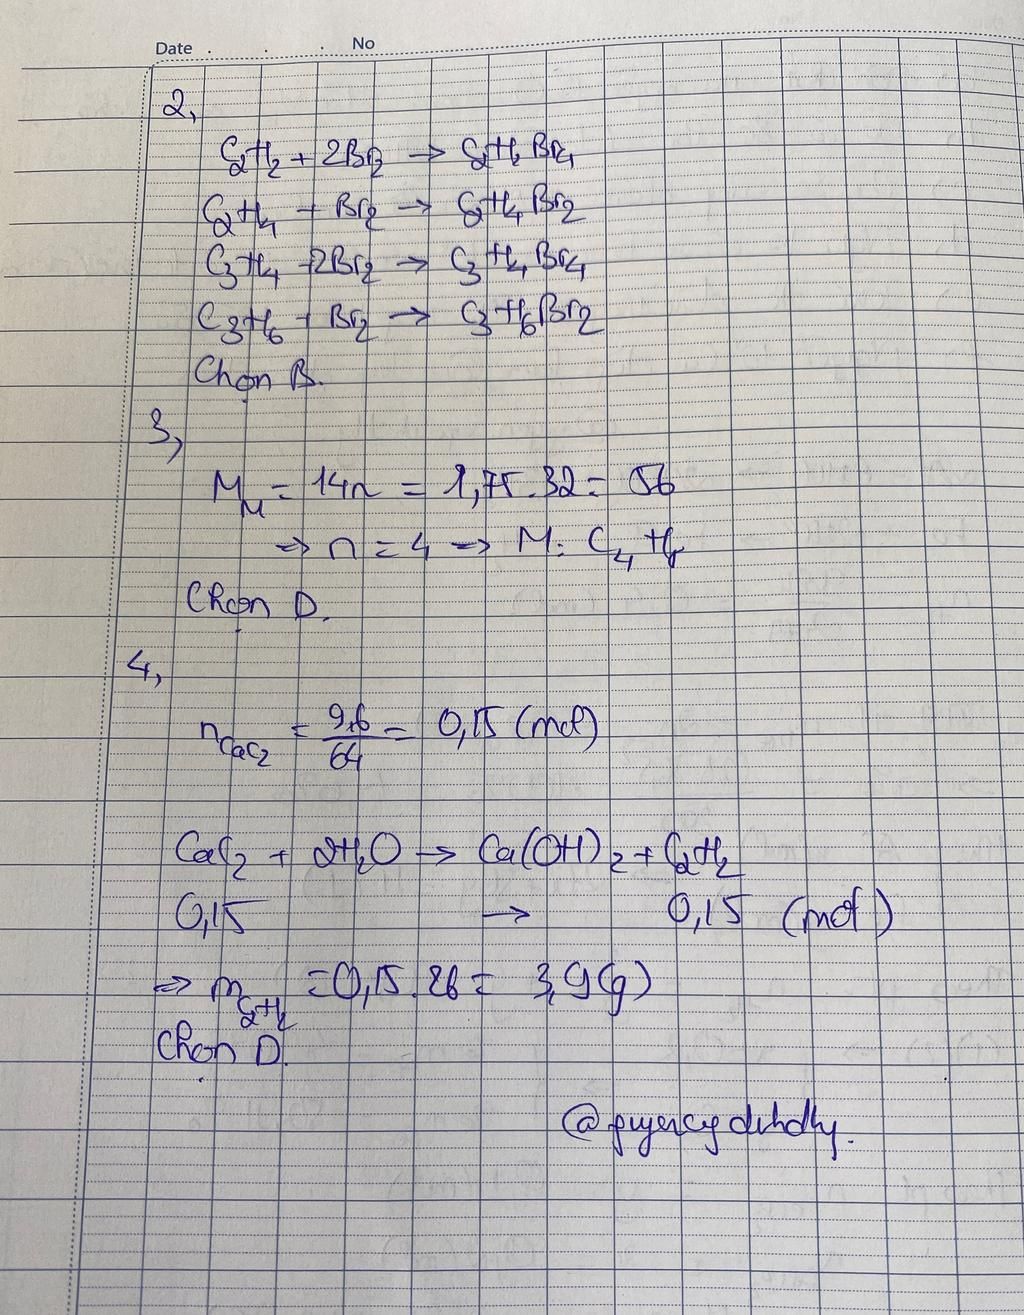 Date . . . No
2,
C2H2 + 2Br2 → C2H2Br4
C2H4 + Br2 → C2H4Br2
C3H4 + 2Br2 → C3H4Br4
C3H6 + Br2 → C3H6Br2
Chọn B.
3,
M_M = 14n = 1,75.32 = 56
⇒ n = 4 → M: C4H8
Chọn D.
4,
nCaC2 = 9,6/64 = 0,15 (mol)
CaC2 + 2H2O → Ca(OH)2 + C2H2
0,15 → 0,15 (mol)
⇒ mC2H2 = 0,15.26 = 3,9(g)
Chọn D.